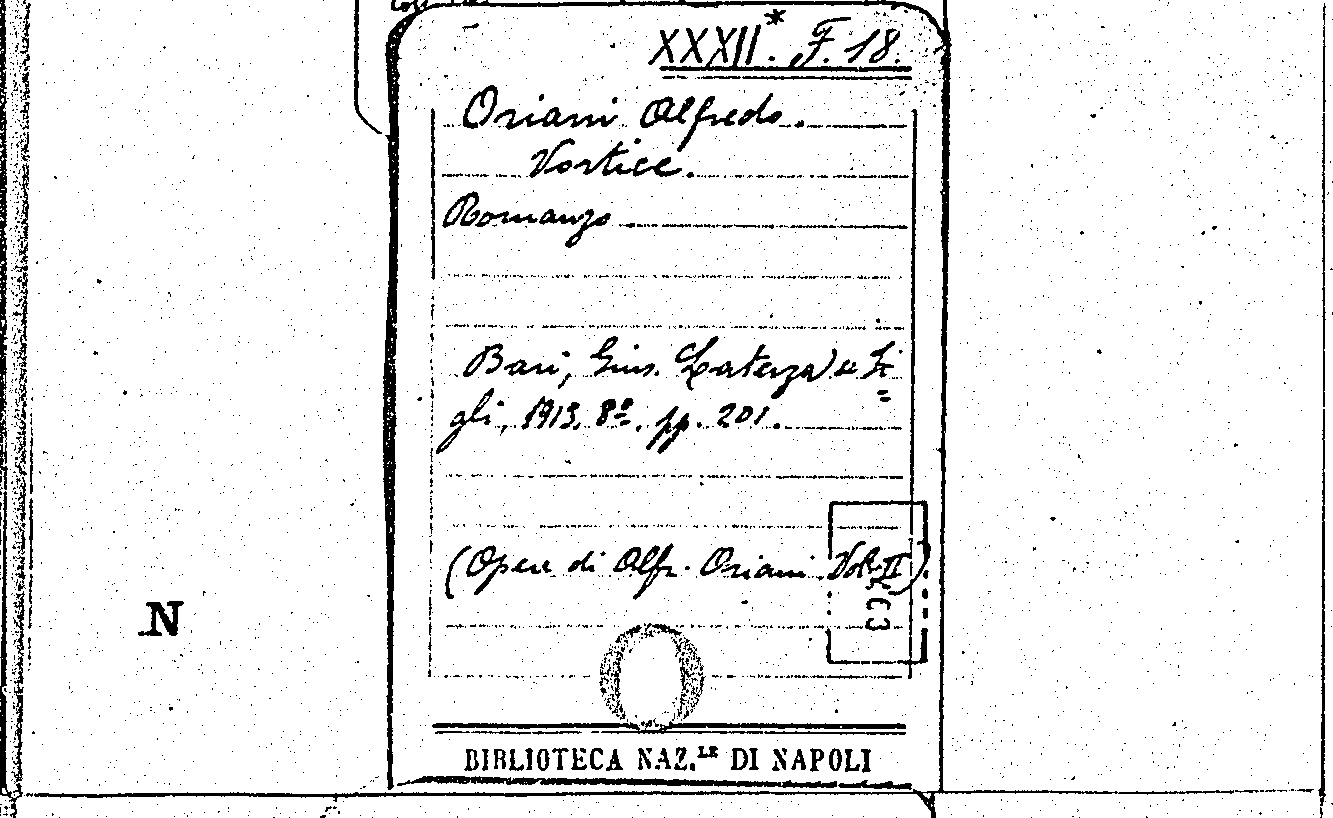 XXXII.* F. 18.
Oriani Alfredo.
Vortice.
Romanzo
Bari, Gius. Laterza e Fi=
gli, 1913. 8º. pp. 201.
(Opere di Alfr. Oriani. Vol. II)
N
BIBLIOTECA NAZ.LE DI NAPOLI